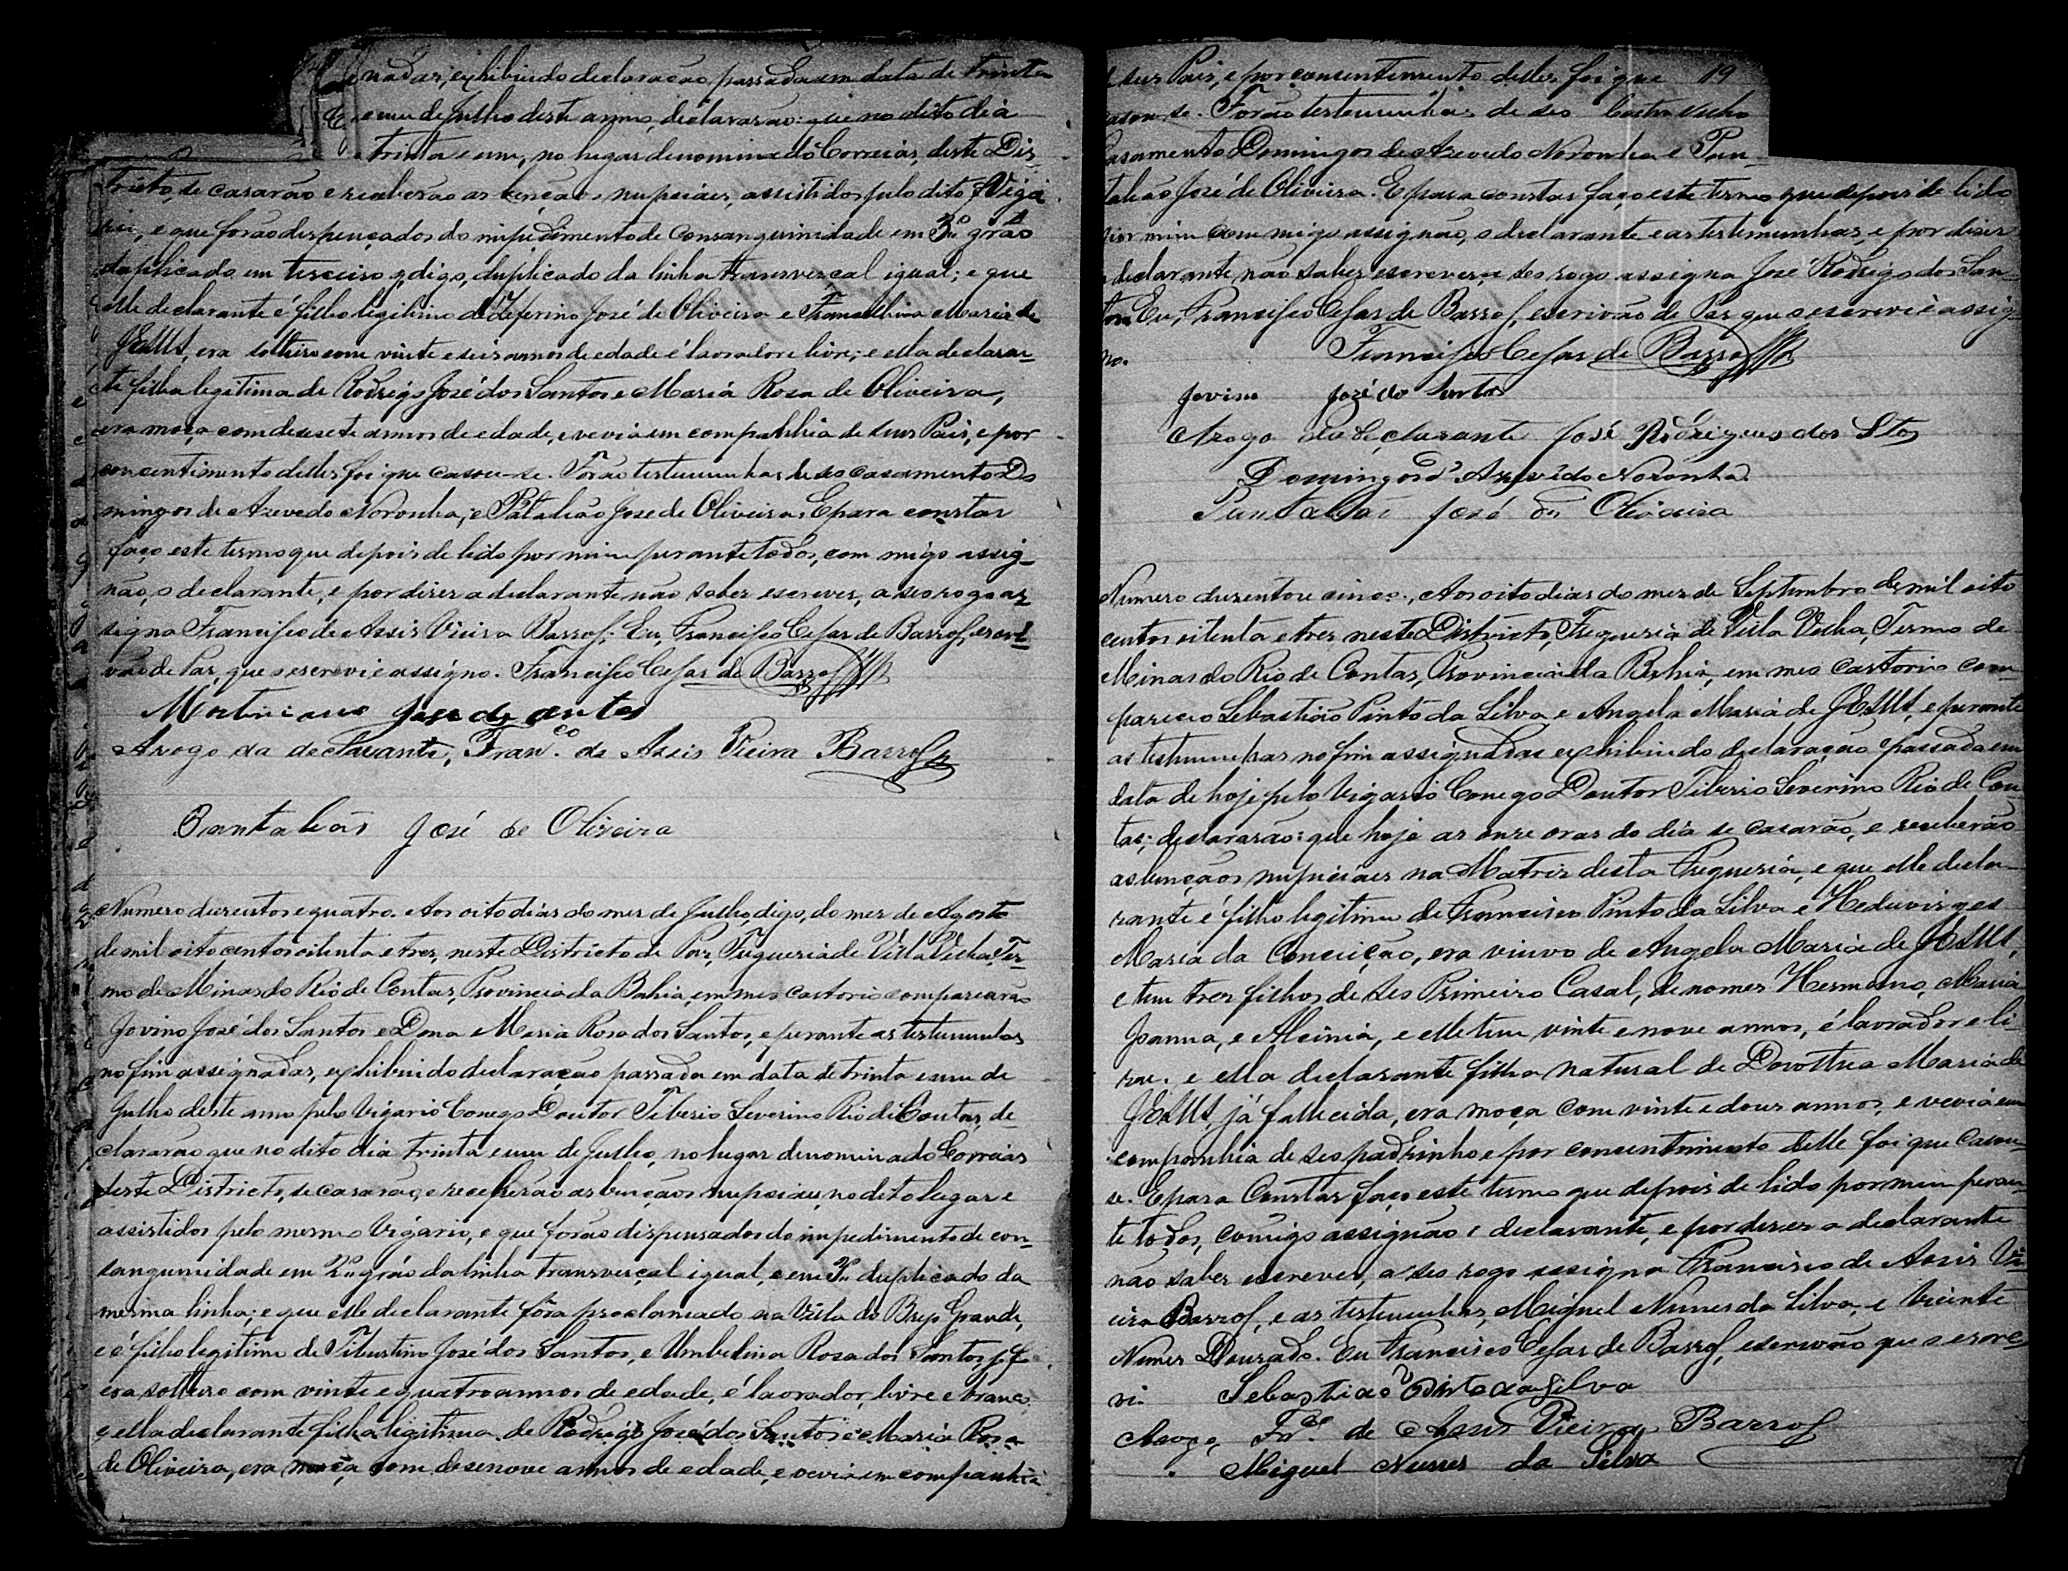 nadas, exhibindo declaração passada em data de trinta
e um de Julho deste anno, declararão: que no dito dia
trinta e um, no lugar denominado Correias, deste Dis-
tricto, se casarão e receberão as bençãos nupciaes, assistidos pelo dito Viga
rio, e que forão dispençados do impedimento de Consanguinidade em 3º gráo
duplicado em terceiro, digo, duplicado da linha transverçal igual; e que
elle declarante é filho legitimo de Zeferino José de Oliveira e Maria de
JEsus, era solteiro com vinte e seis annos de edade é lavrador e livre; e ella declaran-
te filha legitima de Rodrigo José dos Santos e Maria Rosa de Oliveira,
era moça com desesete annos de edade, e vevia em companhia de seus Pais, e por
concentimento delles foi que casou-se. Forão testemunhas de seo casamento Do
mingos de Azevedo Noronha, e Patalião José de Oliveira. E para constar
faço este termo que depois de lido por mim perante todos, com migo assig-
não, o declarante, e por diser a declarante não saber escrever, a seo rogo as
signa Francisco de Assis Vieira Barros. Eu, Francisco Cesar de Barros, escri-
vão de Paz, que o escrevi e assigno. Francisco Cesar de Barros
Martiniano José de
Arogo da declarante, Franco. de Assis Vieira Barros
Pantaleão José de Oliveira
Numero dusentos e quatro. Aos oito dias do mes de Julho, digo, do mes de Agosto
de mil oito centos oitenta e tres, neste Districto de Paz, Freguesia de Villa Velha, Ter-
mo de Minas do Rio de Contas, Provincia da Bahia, em meo cartorio comparecerão
Jovino José dos Santos e Dona Maria Rosa dos Santos, e perante as testemunhas
no fim assignadas, exhibindo declaração passada em data de trinta e um de
Julho deste anno pelo Vigario Conego Doutor Tiberio Severino Rio de Contas, de-
clararão que no dito dia trinta e um de Julho, no lugar denominado Correias
deste Districto, se casarão, e receberão as bençãos nupciaes, no dito lugar e
assistidos pelo mesmo Vigario, e que forão dispensados do impedimento de con-
sanguinidade em 2º gráo da linha transverçal igual, e em 3º duplicado da
mesma linha; e que elle declarante fôra proclamado na Villa do Brejo Grande,
e é filho legitimo de Tiburtino José dos Santos, e Umbelina Rosa dos Santos
era solteiro com vinte e quatro annos de edade, é lavrador, livre e branco
e ella declarante filha legitima de Rodrigo José dos Santos e Maria Rosa
de Oliveira, era moça com desenove annos de edade, e vevia em companhia
de seus Pais, e por consentimento delles foi que 19
casou-se. Forão testemunhas de seo
Casamento Domingos de Azevedo Noronha e Pan-
talião José de Oliveira. E para constar faço este termo que depois de lido
por mim com migo assignão, o declarante e as testemunhas, e por diser
a declarante não saber escrever, a seo rogo assigna José Rodrigo dos San-
tos. Eu, Francisco Cesar de Barros, escrivão de Paz que o escrevi e assig-
no. Francisco Cesar de Barros
Jovino José do Santos
Arogo da declarante José Rodrigues dos Stos
Domingos d'Azevêdo Noronha
Pantalião José de Oliveira
Numero dusentos e cinco. Aos oito dias do mes de Septembro de mil oito
centos oitenta e tres, neste Districto, Freguesia de Villa Velha, Termo de
Minas do Rio de Contas, Provincia da Bahia, em meo cartorio com-
pareceo Sebastião Pinto da Silva e Angela Maria de JEsus, e perante
as testemunhas no fim assignadas exhibindo declaração passada em
data de hoje pelo Vigario Conego Doutor Tiberio Severino Rio de Con-
tas; declararão: que hoje as onze oras do dia se casarão, e receberão
as bençãos nupciaes na Matriz desta Freguesia, e que elle decla-
rante é filho legitimo de Francisco Pinto da Silva e Heduvirges
Maria da Conceição, era viuvo de Angela Maria de JEsus,
e tem tres filhos de seo Primeiro Casal, de nomes Hermano, Maria
Joanna, e Alcinia, e elle tem vinte e nove annos, é lavrador e li-
vre. e ella declarante filha natural de Dorothea Maria de
JEsus, já fallecida, era moça com vinte e dous annos, e vevia em
companhia de seo padrinho e por consentimento delle foi que casou-
se. E para Constar faço este termo que depois de lido por mim peran-
te todos, comigo assignão o declarante, e por diser a declarante
não saber escrever, a seo rogo assigna Francisco de Assis Vi-
eira Barros, e as testemunhas, Miguel Nunes da Silva, e Vicente
Nunes Dourado. Eu Francisco Cesar de Barros, escrivão que o escre-
vi. Sebastião Pinto da Silva
Arogo, Fco. de Assis Vieira Barros
Miguel Nunes da Silva